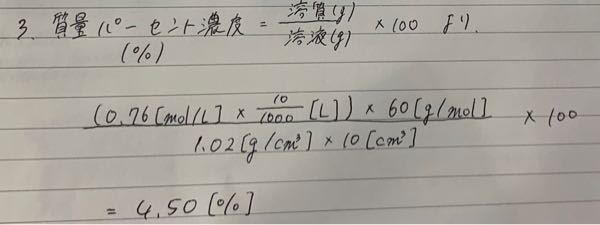 3. 質量パーセント濃度 = 溶質(g)/溶液(g) ×100 より.
(%)
(0.76[mol/L] × 10/1000 [L]) × 60[g/mol] / 1.02[g/cm³] × 10[cm³] × 100
= 4.50[%]